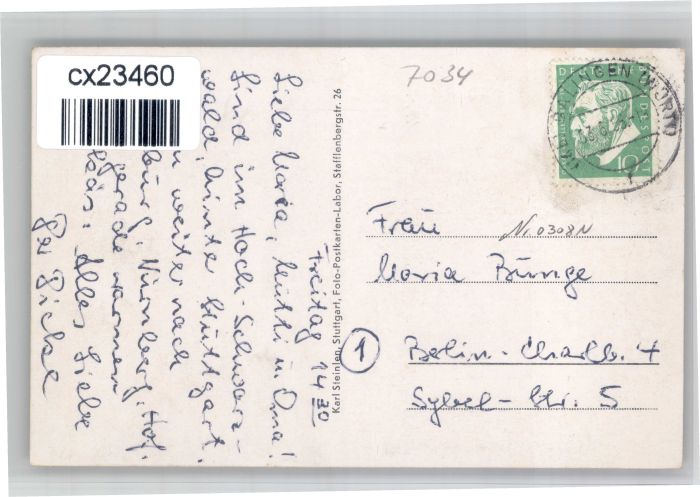 cx23460
7034
DEUTSCHE BUNDESPOST
10
Freitag 14 30
Liebe Maria, Mutti u. Oma!
Sind im Hoch-Schwarz-
wald, hinter Stuttgart.
weiter nach
burg, Nürnberg, Hof.
gerade warmen
Alles Liebe
Karl Steinlen, Stuttgart, Foto-Postkarten-Labor, Stafflenbergstr. 26
Frau
N. 0308N
Maria Bünge
1
Berlin-Charlb. 4
Sybel-Str. 5